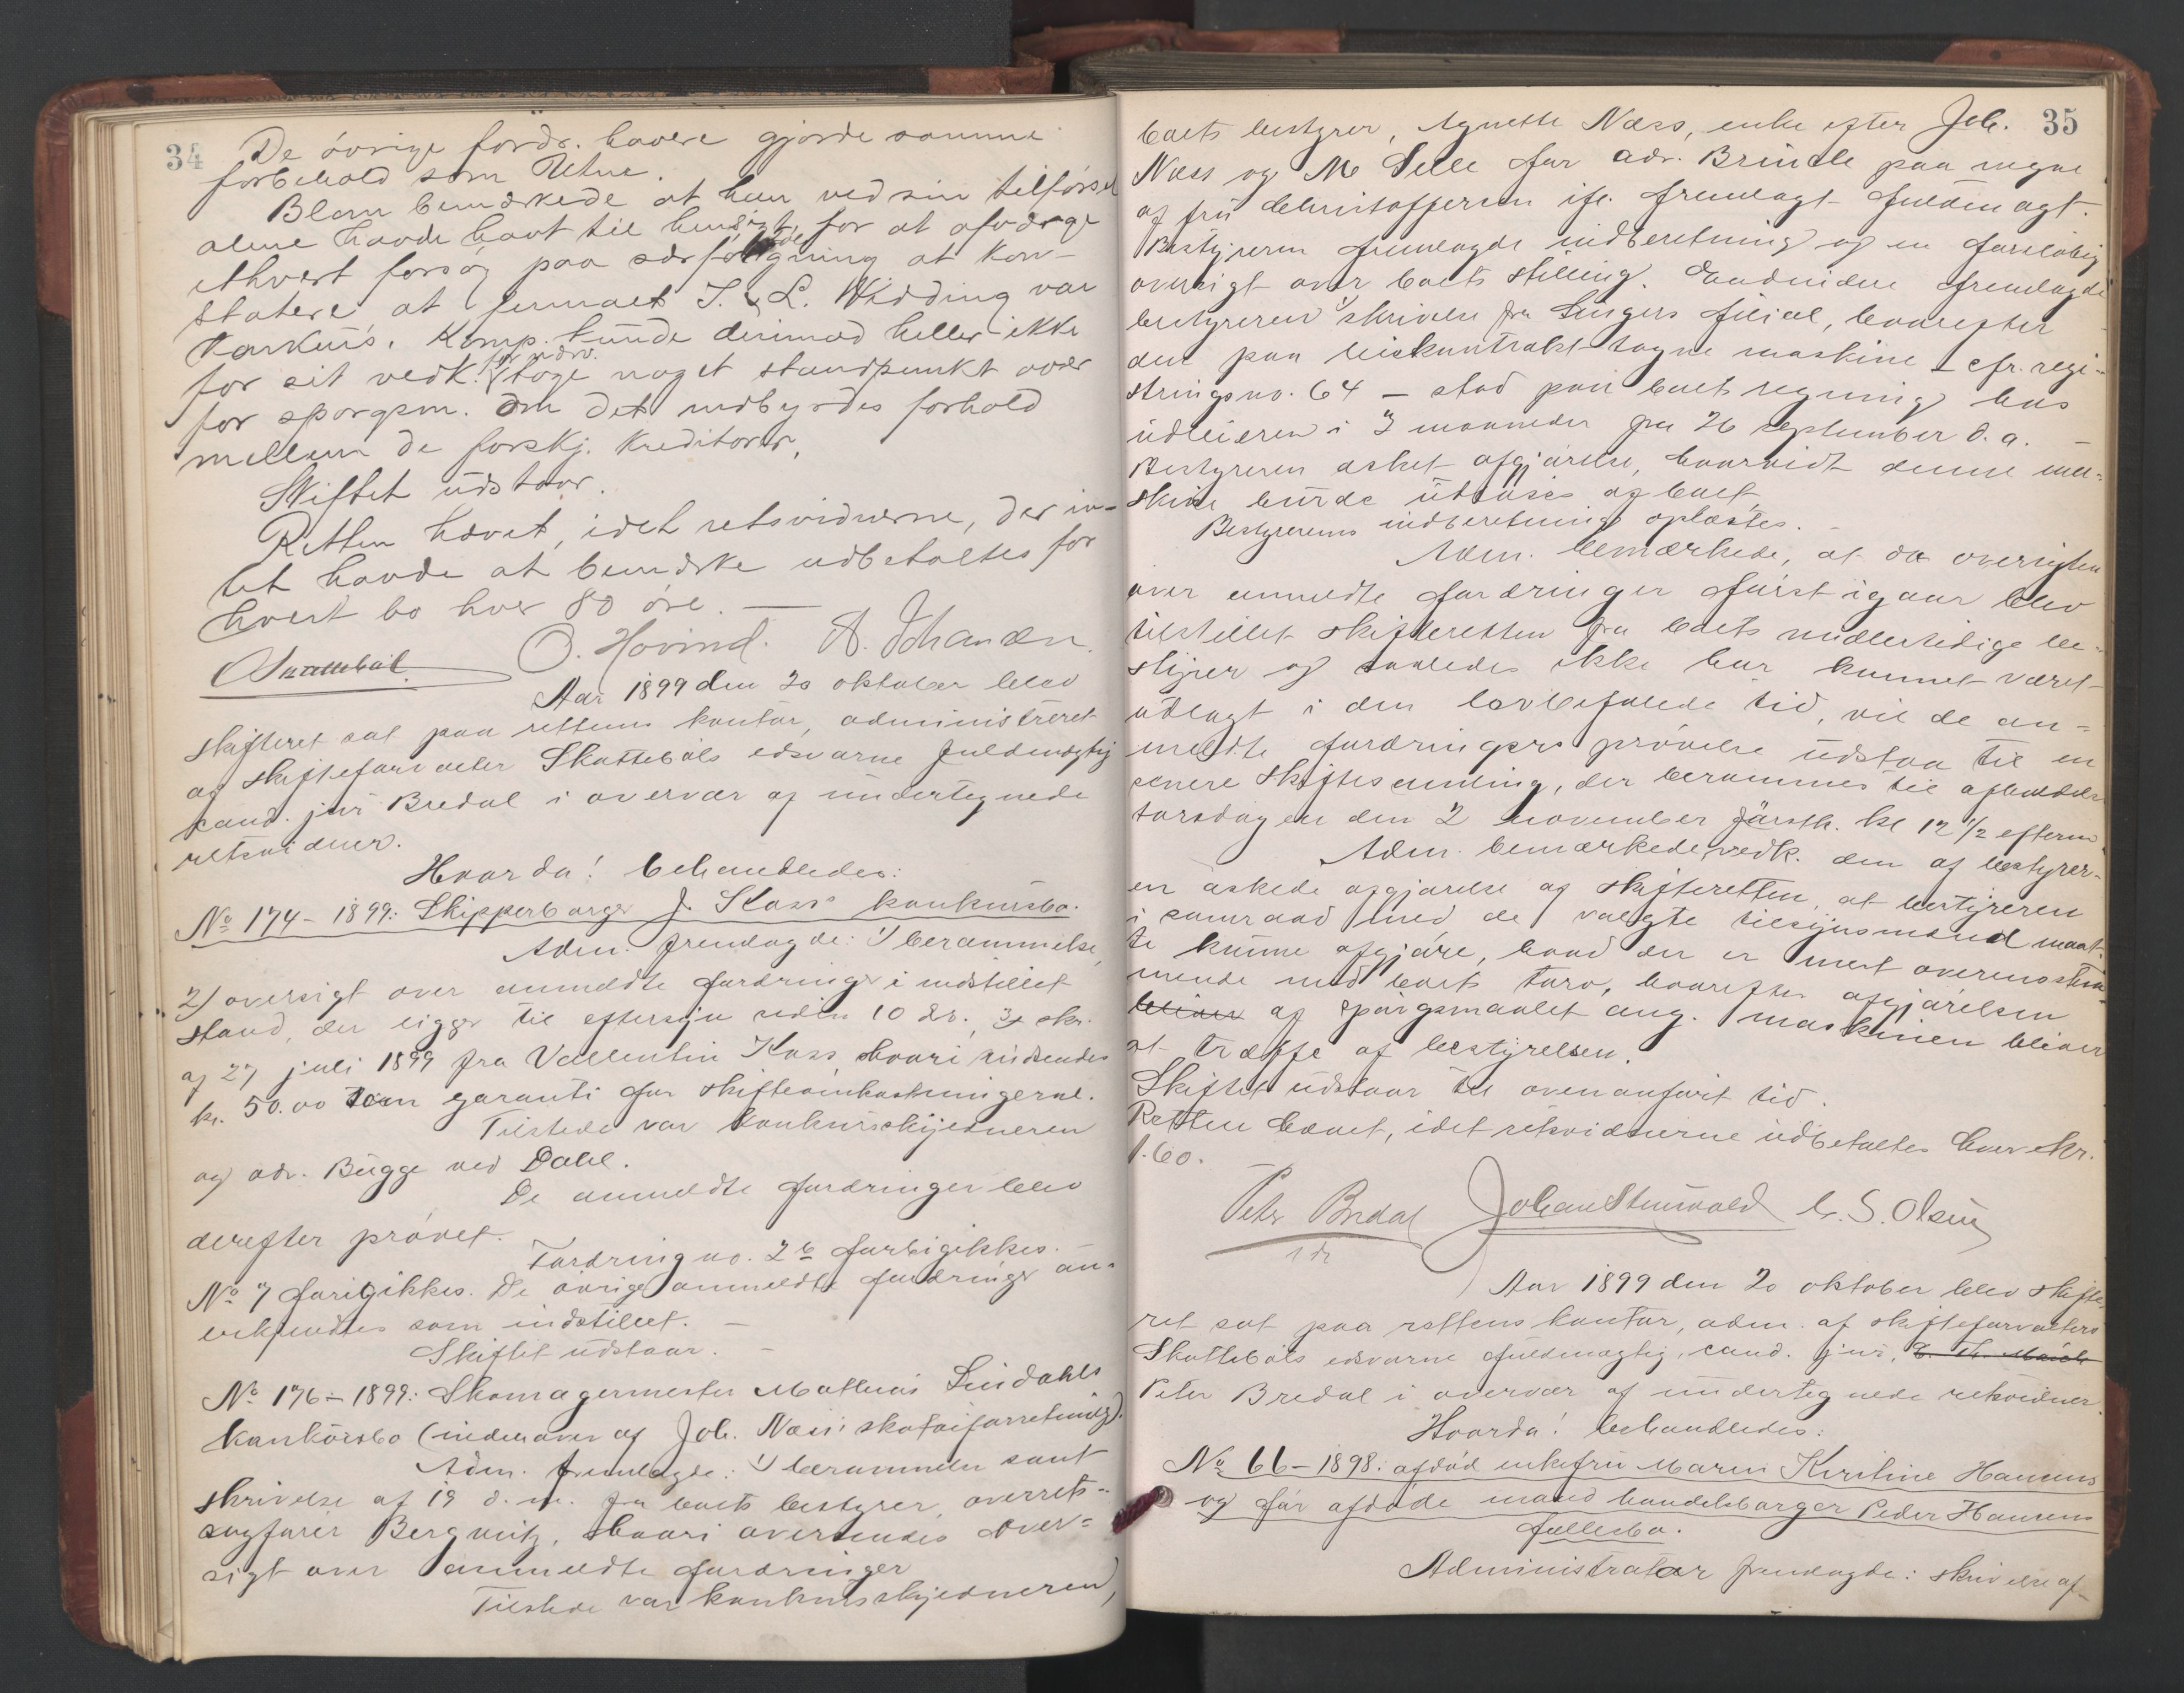 34
De øvrige fordr. havere gjorde samme
forbehold som Utne.
Blom bemærkede at han ved sin tilførsel
alene havde havt til hensigt for at afværge
ethvert forsøg paa særforfølgning at kon-
statere at firmaet J. & L. Widding var
konkurs. Komp. kunde derimod heller ikke
for sit vedk. tage noget standpunkt over
for spørgsm. om det indbyrdes forhold
mellem de forskj. kreditorer,
Skiftet udstaar.
Retten hævet, idet retsvidnerne, der in-
tet havde at bemærke udbetaltes for
hvert bo hver 80 øre. —
O. Hovind. A. Johansen
Skattebøl
Aar 1899 den 20 oktober blev
skifteret sat paa rettens kontor, administreret
af skifteforvalter Skattebøls edsvorne fuldmægtig
cand. jur Bredal i overvær af undertegnede
retsvidner.
Hvorda! behandledes:
No 174 - 1899: Skipperborger J. Kass' konkursbo.
Adm. fremlagde: 1) berammelse,
2) oversigt over anmeldte fordringer i indstillet
stand, der ligger til eftersyn siden 10 ds. 3) skr.
af 27 juli 1899 fra Vallentin Kass, hvori indsendes
kr. 50.00 som garanti for skifteomkostningerne.
Tilstede var konkursskyldneren
og adv. Bugge ved Dahl.
De anmeldte fordringer blev
derefter prøvet.
Fordring no. 26 forbigikkes.
No 7 forbigikkes. De øvrige anmeldte fordringer an-
erkjendtes som indstillet. —
Skiftet udstaar. —
No 176 - 1899: Skomagermester Mathias Lindahls
konkursbo (indehaver af Joh. Næss' skotøiforretning).
Adm. fremlagde: 1) berammelse samt
skrivelse af 19 d. m. fra boets bestyrer, overrets-
sagfører Bergwitz, hvori oversendes over-
sigt over anmeldte fordringer
Tilstede var konkursskyldneren,
35
boets bestyrer, Agnethe Næss, enke efter Joh.
Næss og M. Selle for adv. Brinch paa vegne
af fru Christoffersen ifl. fremlagt fuldmagt.
Bestyreren fremlagde indberetning og en foreløbig
oversigt over boets stilling. Endvidere fremlagde
bestyreren skrivelse fra Singers filial, hvorefter
den paa leiekontrakt tagne maskine – cfr. regi-
streringsno. 64 – stod paa boets regning hos
udleieren i 3 maaneder fra 26 september d. a. –
Bestyreren æsket afgjørelse, hvorvidt denne ma-
skine burde udløses af boet.
Bestyrerens indberetning oplæstes. –
Adm. bemærkede, at da oversigten
over anmeldte fordringer først igaar blev
tilstillet skifteretten fra boets midlertidige be-
styrer og saaledes ikke har kunnet været
udlagt i den lovbefalede tid, vil de an-
meldte fordringers prøvelse udstaa til en
senere skiftesamling, der berammes til afholdelse
torsdagen den 2 november førstk. kl 12 1/2 efterm
Adm. bemærkede vedk. den af bestyrer-
en æskede afgjørelse af skifteretten, at bestyreren
i samraad med de valgte tilsynsmænd maat-
te kunne afgjøre, hvad der er mest overensstem-
mende med boets tarv, hvorefter afgjørelsen
bliver af spørgsmaalet ang. maskinen bliver
at træffe af bestyrelsen.
Skiftet udstaar til ovenanført tid.
Retten hævet, idet retsvidnerne udbetaltes hver kr.
1.60. –
Peter Bredal Johan Stenvold C. S. Olsen
Aar 1899 den 20 oktober blev skifte-
ret sat paa rettens kontor, adm. af skifteforvalter
Skattebøls edsvorne fuldmægtig, cand. jur,
Peter Bredal i overvær af undertegnede retsvidner.
Hvorda! behandledes:
No 66 - 1898: afdød enkefru Maren Kristine Hansens
og før afdøde mand handelsborger Peder Hansens
fællesbo.
Administrator fremlagde: skrivelse af